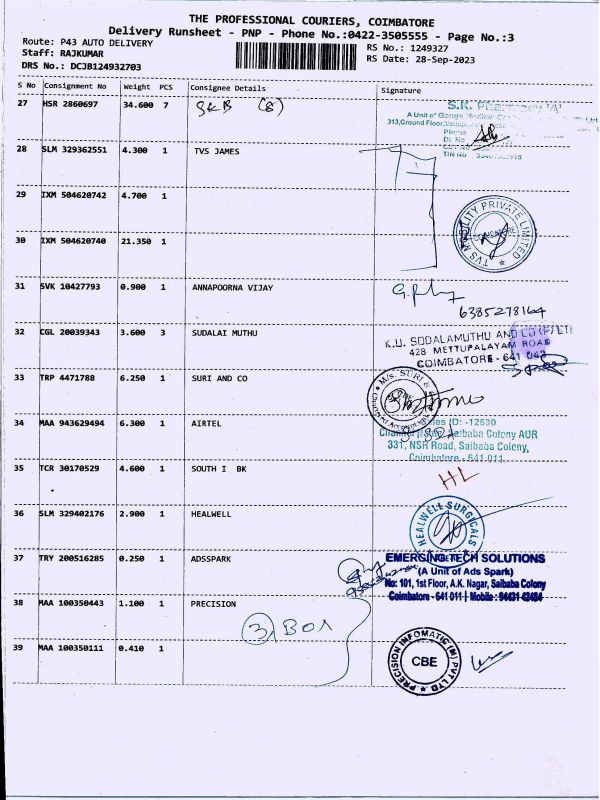 THE PROFESSIONAL COURIERS, COIMBATORE
Delivery Runsheet - PNP - Phone No.:0422-3505555 - Page No.:3
Route: P43 AUTO DELIVERY
Staff: RAJKUMAR
DRS No.: DCJB124932703
RS No.: 1249327
RS Date: 28-Sep-2023
S No Consignment No Weight PCS Consignee Details Signature
27 HSR 2860697 34.600 7 SKB (8)
S.K.
A Unit of Ganga Medical
313,Ground Floor,
Phone
DL No
TIN No
28 SLM 329362551 4.300 1 TVS JAMES
29 IXM 504620742 4.700 1
TVS MOBILITY PRIVATE LIMITED
COIMBATORE
30 IXM 504620740 21.350 1
31 SVK 10427793 0.900 1 ANNAPOORNA VIJAY
6385278164
32 CGL 20039343 3.600 3 SUDALAI MUTHU
K.U. SODALAMUTHU AND CO (P) LTD
428 METTUPALAYAM ROAD
COIMBATORE - 641 043
33 TRP 4471788 6.250 1 SURI AND CO
M/s. SURI &
34 MAA 943629494 6.300 1 AIRTEL
ID: -12630
Saibaba Colony AOR
331, NSR Road, Saibaba Colony,
Coimbatore - 641 011
35 TCR 30170529 4.600 1 SOUTH I BK
HL
36 SLM 329402176 2.900 1 HEALWELL
HEALWELL SURGICALS
37 TRY 200516285 0.250 1 ADSSPARK
EMERGING TECH SOLUTIONS
(A Unit of Ads Spark)
No: 101, 1st Floor, A.K. Nagar, Saibaba Colony
Coimbatore - 641 011 Mobile : 94431 42484
38 MAA 100350443 1.100 1 PRECISION
3, BOX
39 MAA 100350111 0.410 1
PRECISION INFOMATIC (M) PVT LTD
CBE